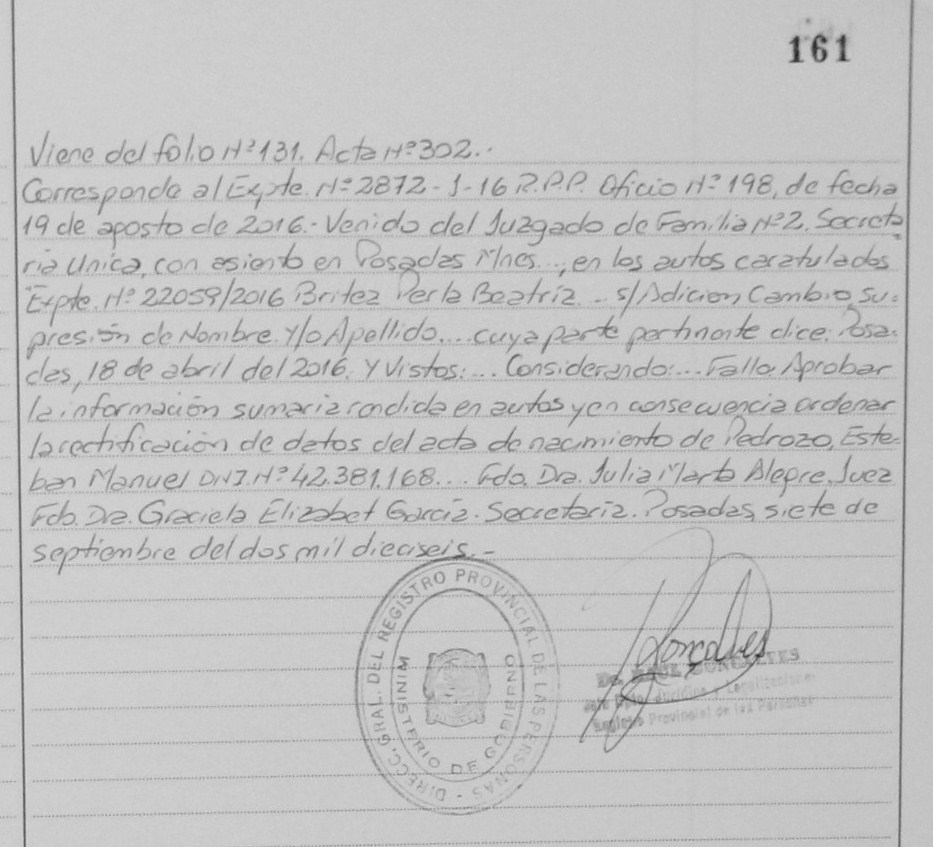 161
Viene del folio Nº131. Acta Nº302..
Corresponde al Expte. Nº 2872-J-16 R.P.P. Oficio Nº 198, de fecha
19 de agosto de 2016.- Venido del Juzgado de Familia Nº2, Secreta
ría Unica, con asiento en Posadas Mnes..., en los autos caratulados
"Expte. Nº 22059/2016 Britez Perla Beatriz... s/Adicion Cambio, Su-
presión de Nombre y/o Apellido... cuya parte pertinente dice: Posa-
das, 18 de abril del 2016. Y Vistos:... Considerando:... Fallo Aprobar
la información sumaria rendida en autos y en consecuencia ordenar
la rectificación de datos del acta de nacimiento de Pedrozo, Este-
ban Manuel DNI. Nº 42.381.168... Fdo. Dra. Julia Marta Alegre, Juez
Fdo. Dra. Graciela Elizabet García. Secretaria. Posadas, siete de
septiembre del dos mil dieciseis.-
DIRECC. GRAL. DEL REGISTRO PROVINCIAL DE LAS PERSONAS -
MINISTERIO DE GOBIERNO
Dr. RAUL GONZALVES
Jefe Dpto. Jurídico y Legalizaciones
Registro Provincial de las Personas